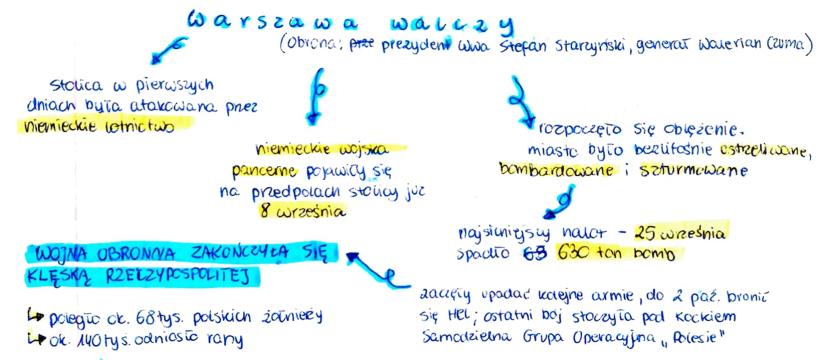 warszawa walczy
(obrona: prezydent wwa Stefan Starzyński, generał Walerian Czuma)
stolica w pierwszych
dniach była atakowana przez
niemieckie lotnictwo
niemieckie wojska
pancerne pojawiły się
na przedpolach stolicy już
8 września
rozpoczęło się oblężenie.
miasto było bezlitośnie ostrzeliwane,
bombardowane i szturmowane
najsilniejszy nalot - 25 września
spadło 630 ton bomb
WOJNA OBRONNA ZAKOŃCZYŁA SIĘ
KLĘSKĄ RZECZYPOSPOLITEJ
↳ poległo ok. 68 tys. polskich żołnierzy
↳ ok. 140 tys. odniosło rany
zaczęły upadać kolejne armie, do 2 paź. bronił
się HEL; ostatni bój stoczyła pod Kockiem
Samodzielna Grupa Operacyjna „Polesie"